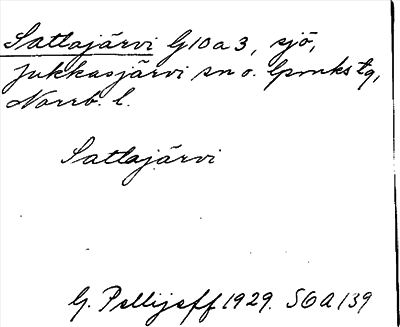 Satlajärvi G10a3, sjö,
Jukkasjärvi sn o. lpmkstg,
Norrb. l.
Satlajärvi
G. Pellijeff 1929. SOA 139